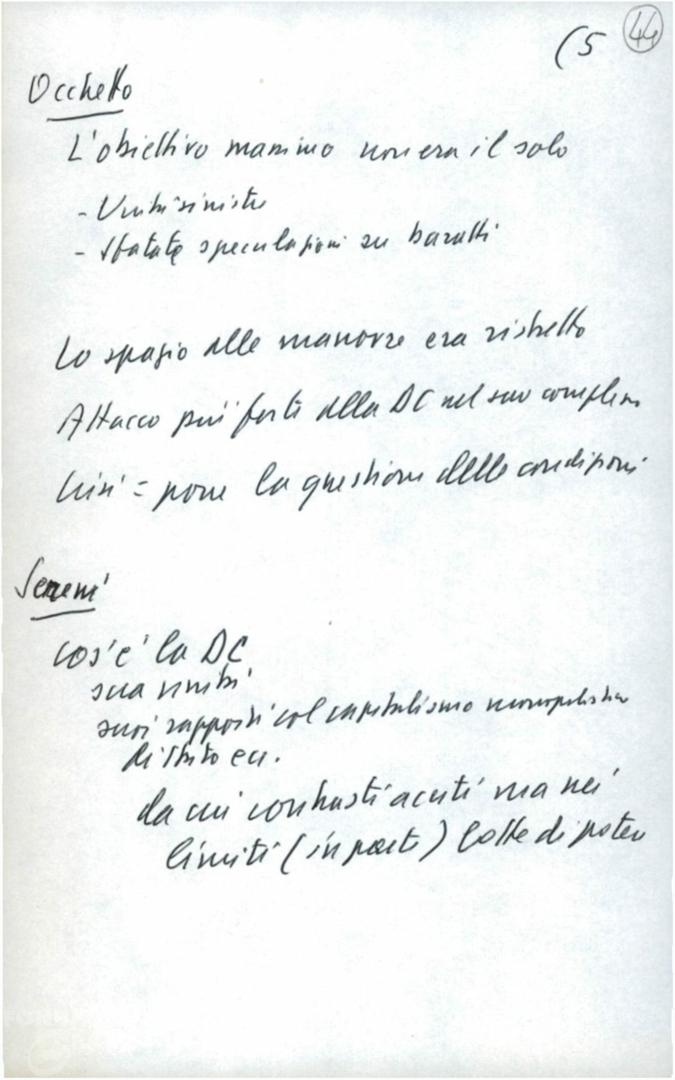 (5 44
Occhetto
L'obiettivo massimo non era il solo
- Unità sinistre
- Sfatate speculazioni su baratti
Lo spazio alle manovre era ristretto
Attacco più forte alla DC nel suo complesso
Crisi = pone la questione delle condizioni
Sereni
cos'è la DC
sua unità
suoi rapporti col capitalismo monopolistico
di Stato ecc.
da cui contrasti acuti ma nei
limiti (in parte) lotte di potere